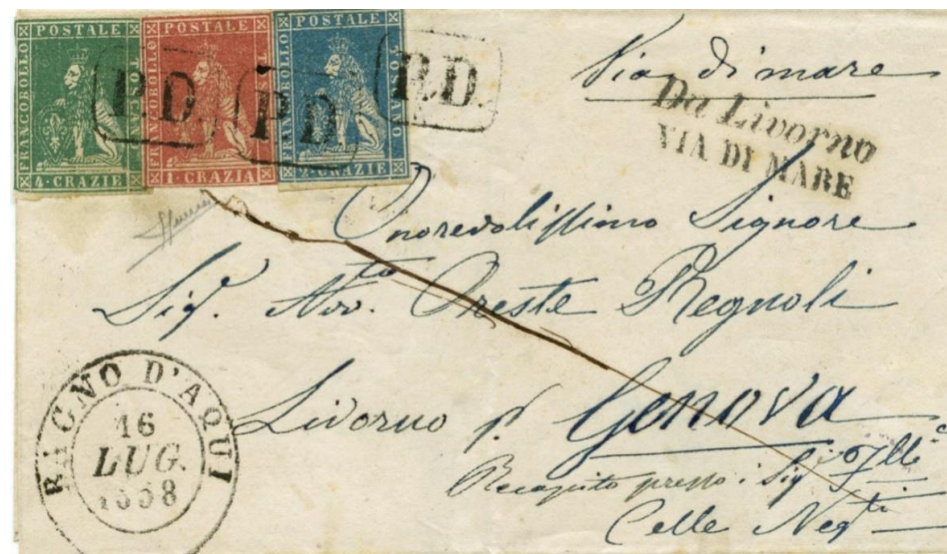 FRANCOBOLLO POSTALE TOSCANO
4·CRAZIE
FRANCOBOLLO POSTALE TOSCANO
1·CRAZIA
FRANCOBOLLO POSTALE TOSCANO
2·CRAZIE
P.D.
P.D.
P.D.
Via di mare
Da Livorno
VIA DI MARE
Onorevolissimo Signore
Sigr. Avv.to Oreste Regnoli
Livorno p. Genova
Recapito presso i Sigi Flli
Celle Negti
BAGNO D'AQUI
16
LUG.
1858